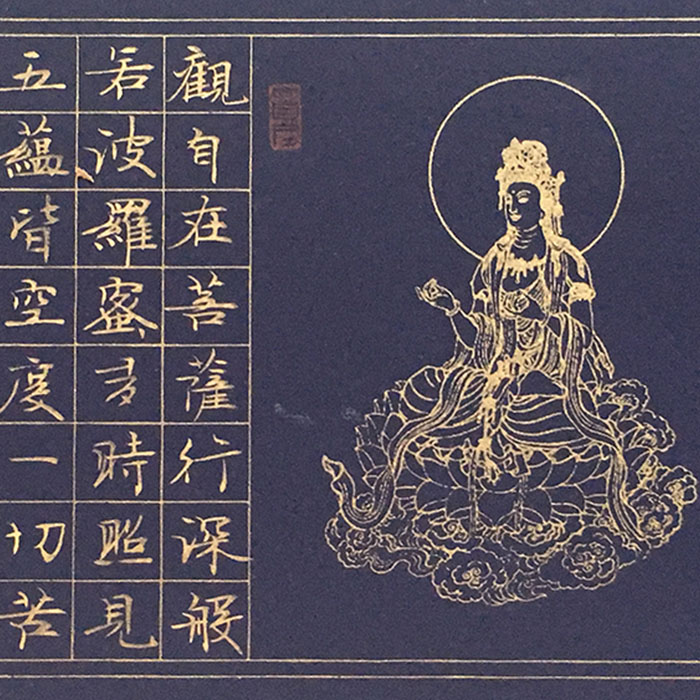 觀自在菩薩行深般
若波羅蜜多時照見
五蘊皆空度一切苦